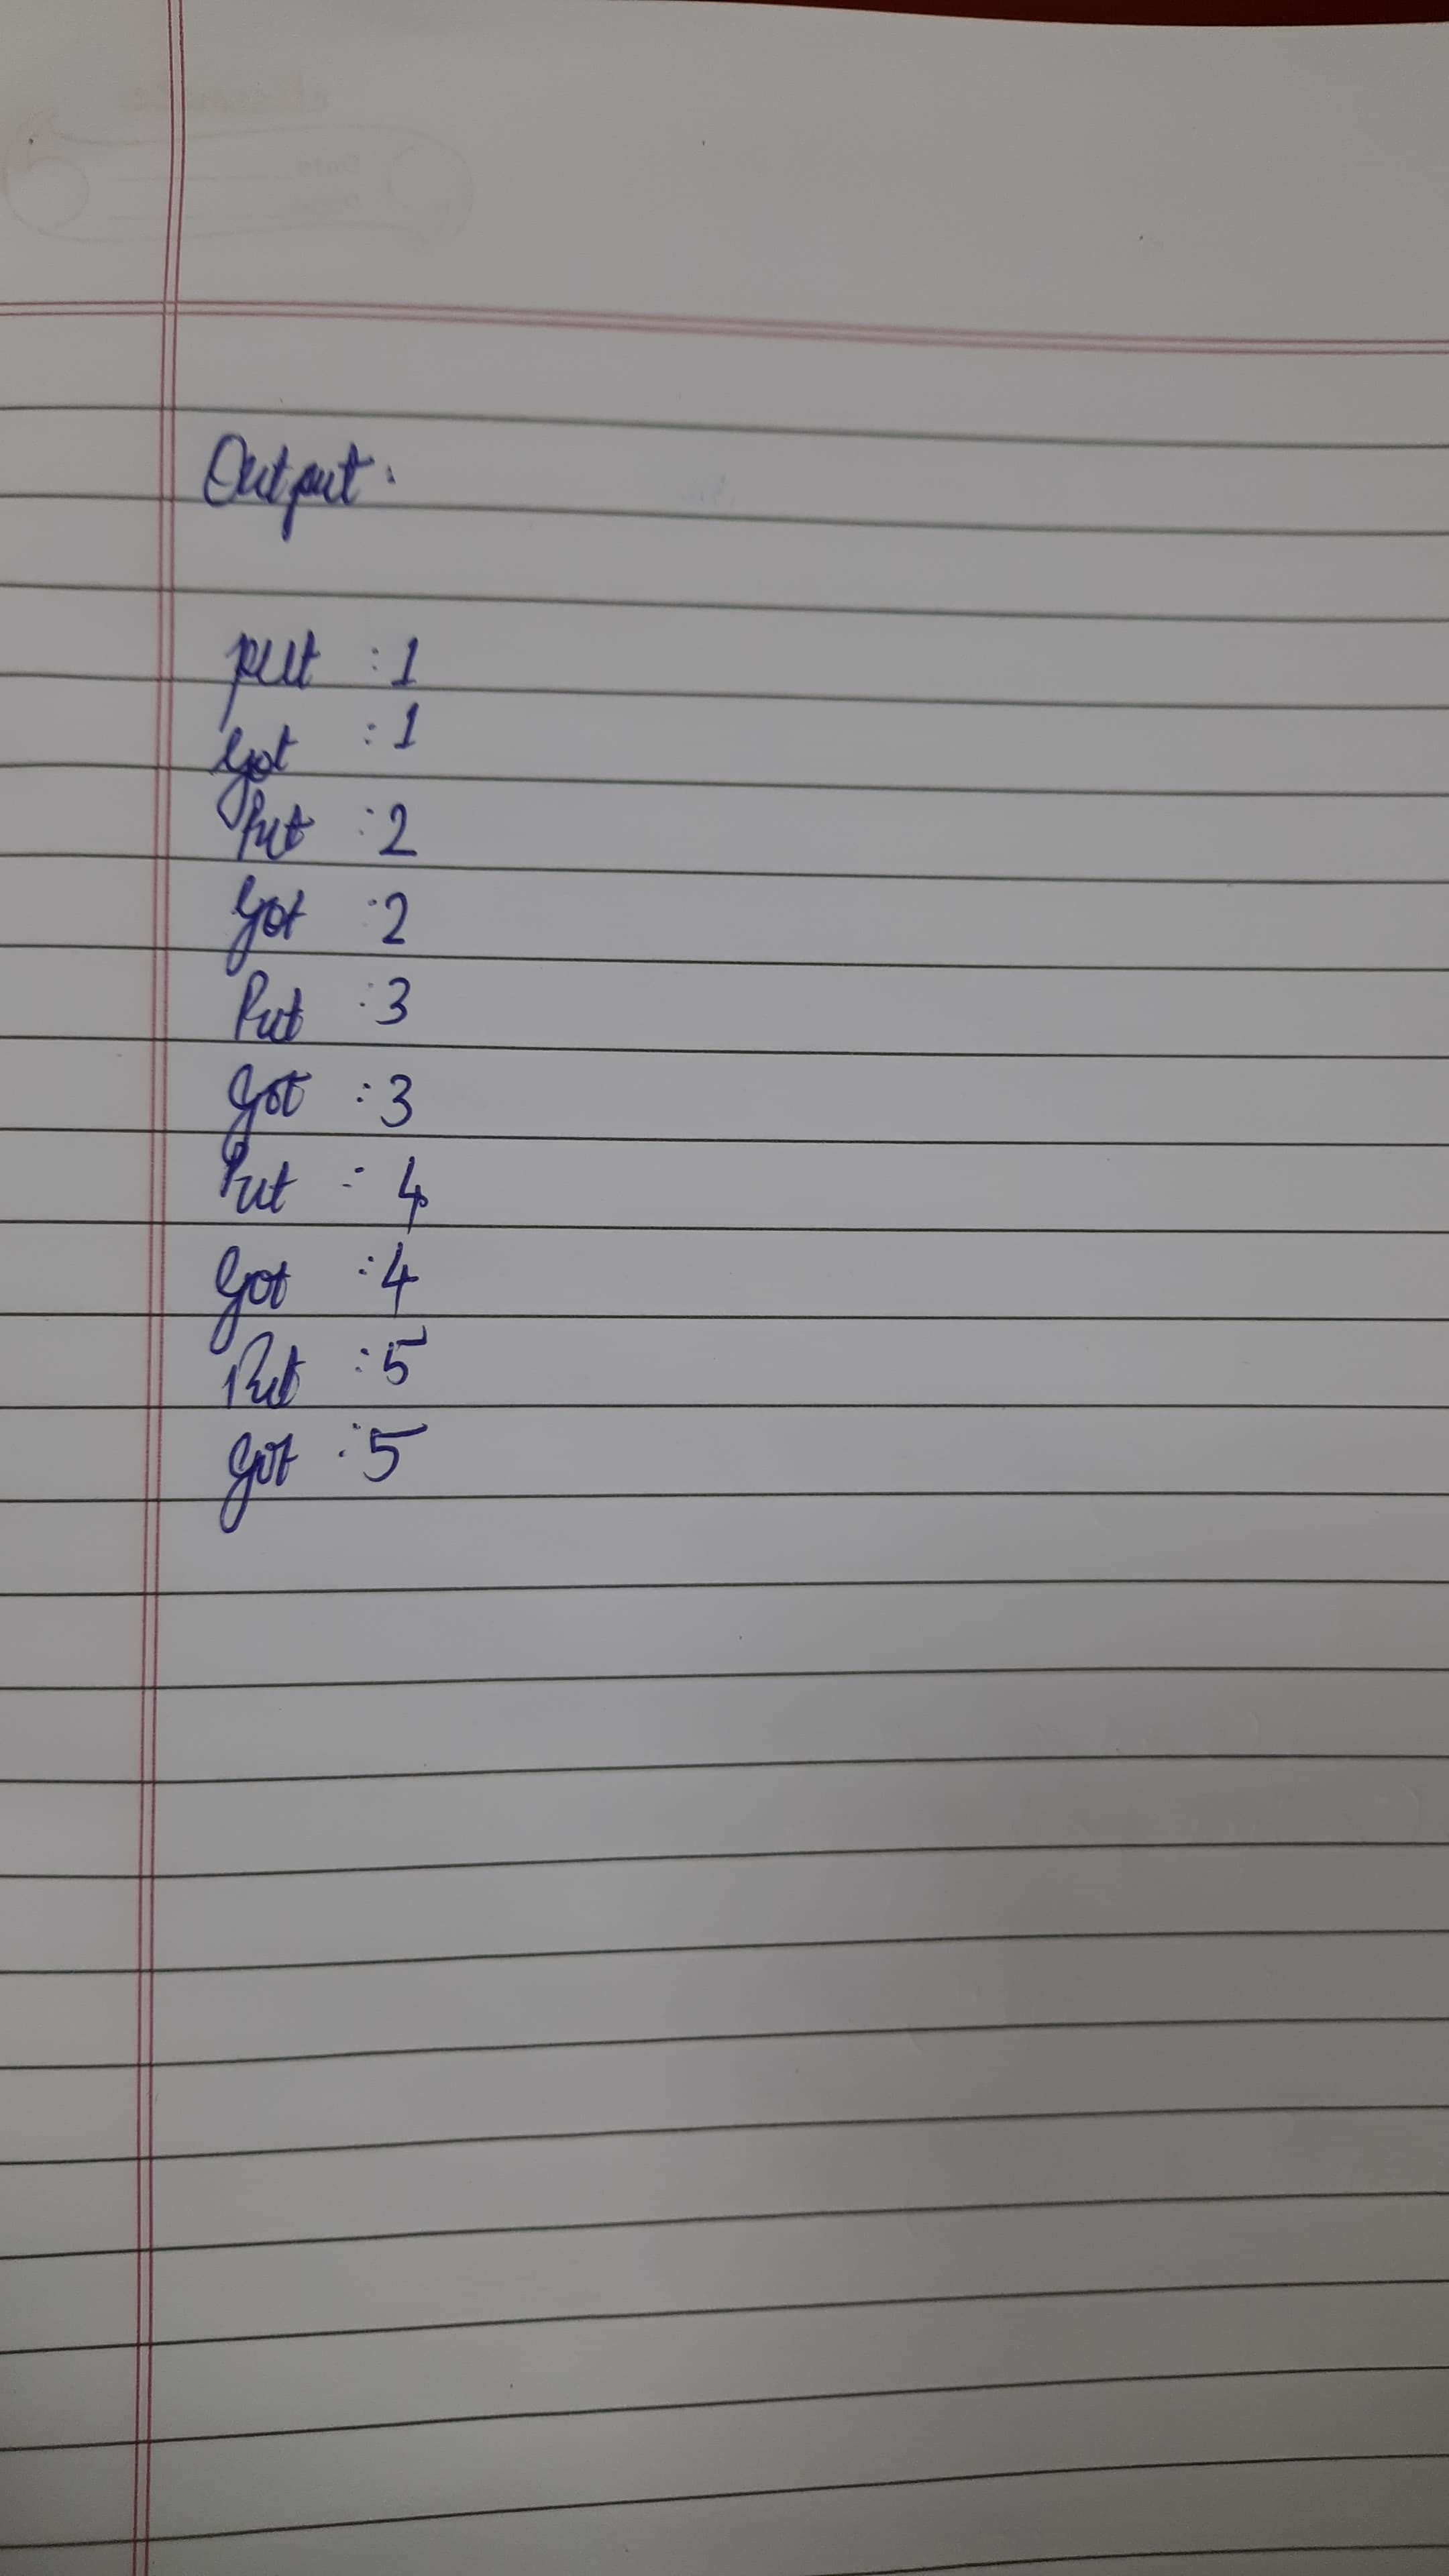 Output :
put : 1
Got : 1
Put : 2
Got : 2
Put : 3
Got : 3
Put : 4
Got : 4
Put : 5
Got : 5